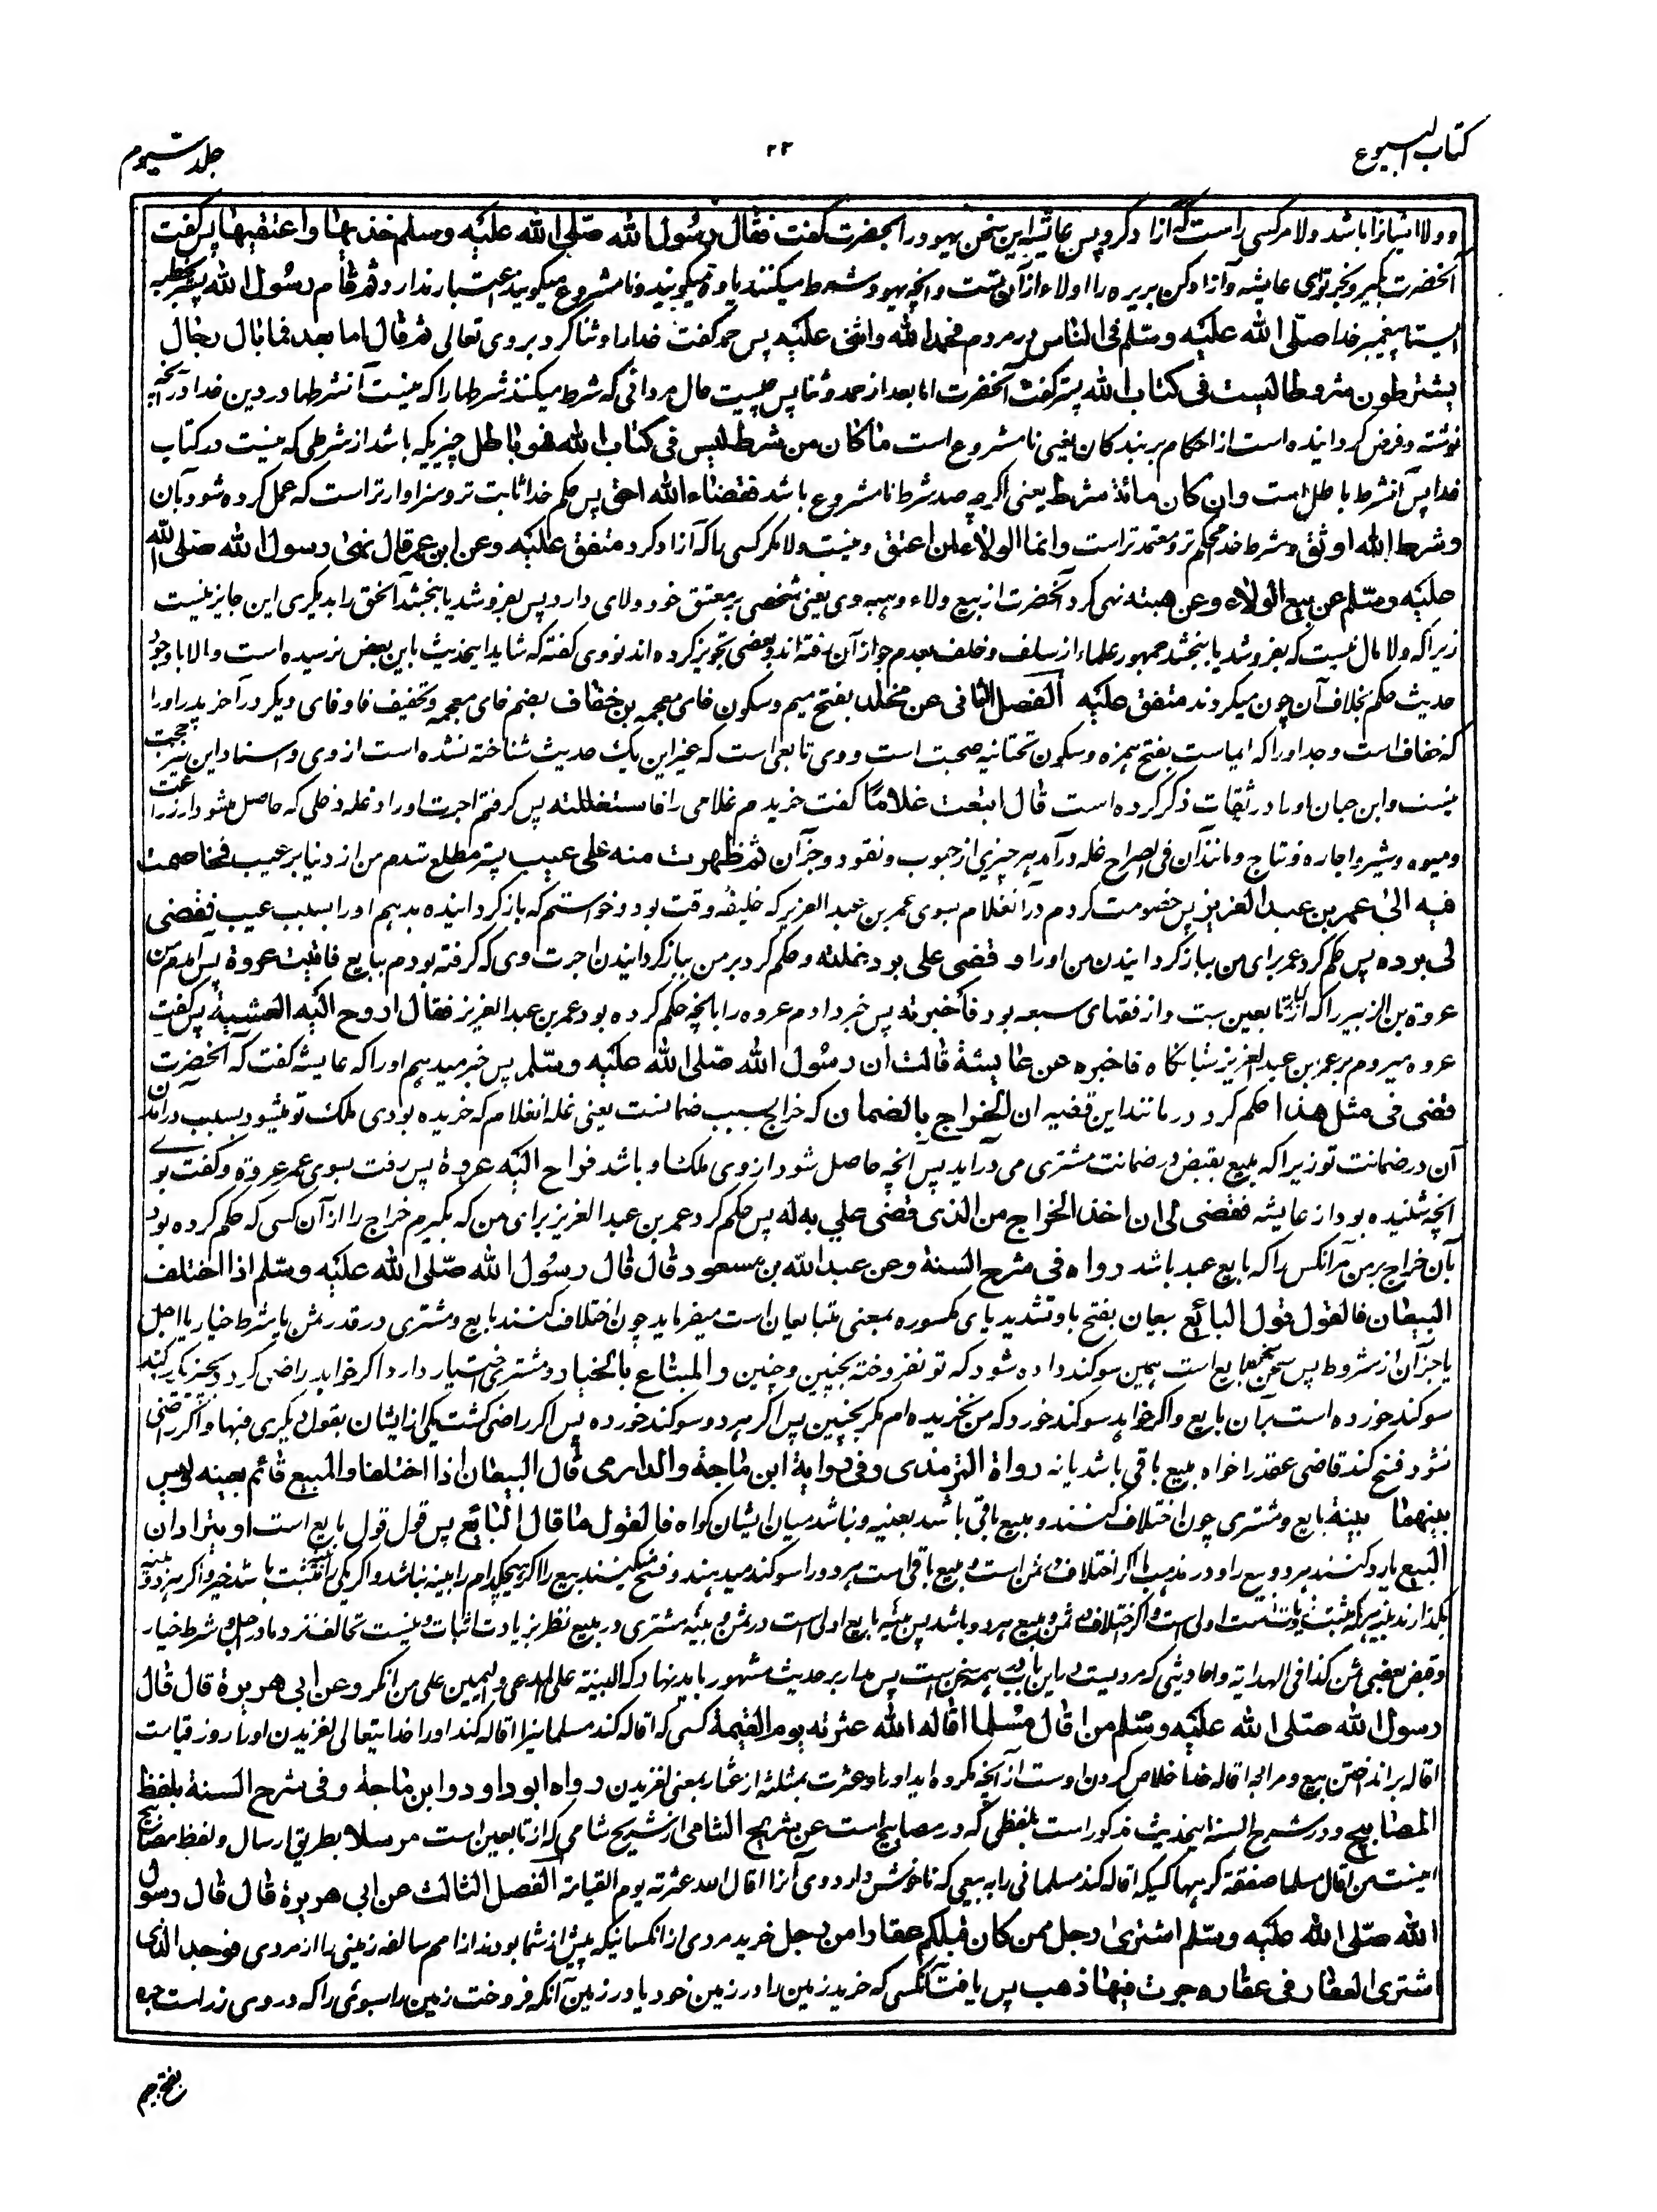 کتاب البیوع
۲۳
جلد سیوم
و ولا ایشانرا باشد ولا مر کسی راست که آزاد کرد پس عایشه این سخن یهود را بحضرت گفت فقال رسول الله صلی الله علیه وسلم خذیها واعتقیها پس گفت
آنحضرت بگیر و بخر تو ای عایشه و آزاد کن بریره را و ولاء از آن تست و انچه یهود شرط میکنند یاوه میگویند و نامشروع میگویند اعتبار ندارد ثم قام رسول الله پستر بخطبه
ایستاد پیغمبر خدا صلی الله علیه وسلم فی الناس در مردم فحمد الله واثنی علیه پس حمد گفت خدا را و ثنا کرد بر وی تعالی ثم قال اما بعد فما بال رجال
یشترطون شروطا لیست فی کتاب الله پستر گفت آنحضرت اما بعد از حمد و ثنا پس چیست حال مردانی که شرط میکنند شرطها را که نیست آنشرطها در دین خدا و در آنچه
نوشته و فرض گردانیده است از احکام بر بندگان یعنی نامشروع است ما کان من شرط لیس فی کتاب الله فهو باطل چیزیکه باشد از شرطی که نیست در کتاب
خدا پس آنشرط باطل است وان کان مائة شرط یعنی اگرچه صد شرط نامشروع باشد فقضاء الله احق پس حکم خدا ثابت تر و سزاوارتر است که عمل کرده شود بآن
وشرط الله اوثق و شرط خدا محکم تر و معتمدتر است وانما الولاء لمن اعتق و نیست ولا مگر کسی را که آزاد کرد متفق علیه وعن ابن عمر قال نهی رسول الله صلی الله
علیه وسلم عن بیع الولاء وعن هبته نهی کرد آنحضرت از بیع ولاء و هبه وی یعنی شخصی بر معتق خود ولای دارد پس بفروشد یا ببخشد آنحق را بدیگری این جایز نیست
زیرا که ولا مال نیست که بفروشد یا ببخشد جمهور علماء از سلف و خلف بعدم جواز آن رفته اند و بعضی تجویز کرده اند نووی گفته که شاید اینحدیث باین بعض نرسیده است والا با وجود
حدیث حکم بخلاف آن چون میکردند متفق علیه الفصل الثانی عن مخلد بفتح میم و سکون خای معجمه بن خفاف بضم خای معجمه و تخفیف فا و فای دیگر در آخر پدر او را
که خفاف است و جد او را که ایماست بفتح همزه و سکون تحتانیه صحبت است و وی تابعی است که غیر این یک حدیث شناخته نشده است از وی و اسناد این نیز حجت
نیست و ابن حبان او را در ثقات ذکر کرده است قال ابتعت غلاما گفت خریدم غلامی را فاستغللته پس گرفتم اجرت او را و غله دخلی که حاصل میشود از زراعت
و میوه و شیر و اجاره و نتاج و مانند آن فی الصراح غله درآمد هر چیزی از حبوب و نقود و جز آن ثم ظهرت منه علی عیب پستر مطلع شدم من از دنیا بر عیب فخاصمت
فیه الی عمر بن عبد العزیز پس خصومت کردم در آنغلام بسوی عمر بن عبد العزیز که خلیفه وقت بود و خواستم که باز گردانیده بدهم او را بسبب عیب فقضی
لی برده پس حکم کرد عمر برای من بباز گردانیدن من او را و قضی علی برد غلته و حکم کرد بر من بباز گردانیدن اجرت وی که گرفته بودم ببایع فاتیت عروة پس آمدم من
عروة بن الزبیر را که از کبار تابعین ست و از فقهای سبعه بود فاخبرته پس خبر دادم عروه را بانچه حکم کرده بود عمر بن عبد العزیز فقال اروح الیه العشیة پس گفت
عروه میروم بر عمر بن عبد العزیز شبانگاه فاخبره عن عایشة قالت ان رسول الله صلی الله علیه وسلم پس خبر میدهم او را که عایشه گفت که آنحضرت
قضی فی مثل هذا حکم کرد در مانند این قضیه ان الخراج بالضمان که خراج بسبب ضمانست یعنی غله آنغلام که خریده بودی ملک تو میشود بسبب درآمدن
آن در ضمانت تو زیرا که مبیع بقبض در ضمانت مشتری می درآید پس آنچه حاصل شود از وی ملک او باشد فراح الیه عروة پس رفت بسوی عمر عروة و گفت بوی
انچه شنیده بود از عایشه فقضی لی ان اخذ الخراج من الذی قضی علی به له پس حکم کرد عمر بن عبد العزیز برای من که بگیرم خراج را از آن کسی که حکم کرده بود
بآن خراج بر من مر آنکس را که بایع عبد باشد رواه فی شرح السنة وعن عبد الله بن مسعود قال قال رسول الله صلی الله علیه وسلم اذا اختلف
البیعان فالقول قول البائع بیعان بفتح با و تشدید یای مکسوره بمعنی متبایعان است میفرماید چون اختلاف کنند بایع و مشتری در قدر ثمن یا شرط خیار یا اجل
یا جز آن از شروط پس سخن بایع است همین سوگند داده شود که تو نفروخته بچنین و چنین والمبتاع بالخیار و مشتری اختیار دارد اگر خواهد راضی گردد بچیزیکه
سوگند خورده است بآن بایع و اگر خواهد سوگند خورد که من نخریده ام مگر بچنین پس اگر هر دو سوگند خورده پس اگر راضی گشت یکی از ایشان بقول دیگری فبها و اگر راضی
نشود فسخ کند قاضی عقد را خواه مبیع باقی باشد یا نه رواة الترمذی وفی روایة ابن ماجة والدارمی قال البیعان اذا اختلفا والمبیع قائم بعینه لیس
بینهما بینة بایع و مشتری چون اختلاف کنند و مبیع باقی باشد بعینه و نباشد میان ایشان گواه فالقول ما قال البائع پس قول قول بایع است او یترادان
البیع یا رد کنند هر دو بیع را و در مذهب ما اگر اختلاف در ثمن است و مبیع باقی است هر دو را سوگند میدهند و فسخ میکنند بیع را اگر هیچکدام را بینه نباشد
بگذارند بینه هر که مثبت زیادت است اولی است و اگر اختلاف در ثمن و مبیع هر دو باشد پس بینه بایع اولی است در ثمن و بینه مشتری در مبیع نظر بزیادت اثبات و نیست تحالف نزد ما در اجل و شرط خیار
و قبض بعضی ثمن کذا فی الهدایه و احادیثی که مرویست در این باب همه سخن است پس مدار بر حدیث مشهور باید نهاد که البینة علی المدعی والیمین علی من انکر وعن ابی هریرة قال قال
رسول الله صلی الله علیه وسلم من اقال مسلما اقاله الله عثرته یوم القیمة کسی که اقاله کند مسلمانی را اقاله کند او را خدایتعالی لغزیدن او را روز قیامت
اقاله برانداختن بیع و مراد باقاله خدا خلاص کردن اوست از آنچه مکروه آید او را و عثرت بمثلثه از عثار بمعنی لغزیدن رواه ابو داود وابن ماجة وفی شرح السنة بلفظ
المصابیح و در شرح السنه اینحدیث مذکور است بلفظی که در مصابیح است عن شریح الشامی از شریح شامی که از تابعین است مرسلا بطریق ارسال و لفظ مصابیح
اینست من اقال مسلما صفقة کرهها کسیکه اقاله کند مسلمانی را به بیعی که ناخوش دارد وی آنرا اقال الله عثرته یوم القیامة الفصل الثالث عن ابی هریرة قال قال رسول
الله صلی الله علیه وسلم اشتری رجل ممن کان قبلکم عقارا من رجل خرید مردی از آنکسانیکه پیش از شما بودند از امم سالفه زمینی را از مردی فوجد الذی
اشتری العقار فی عقاره جرة فیها ذهب پس یافت آنکسی که خرید زمین را در زمین خود یا در زمین آنکه فروخت زمین را سبوئی را که در وی زر است جره
بفتح جیم